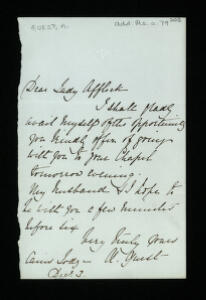 GUEST, A.
Add. Ms. c. 79
Dear Lady Affleck
I shall gladly
avail myself of the opportunity
you kindly offer of going
with you to your Chapel
tomorrow evening.
My husband & I hope to
be with you a few minutes
before six.
Very truly yours
A. Guest
Dec. 3.